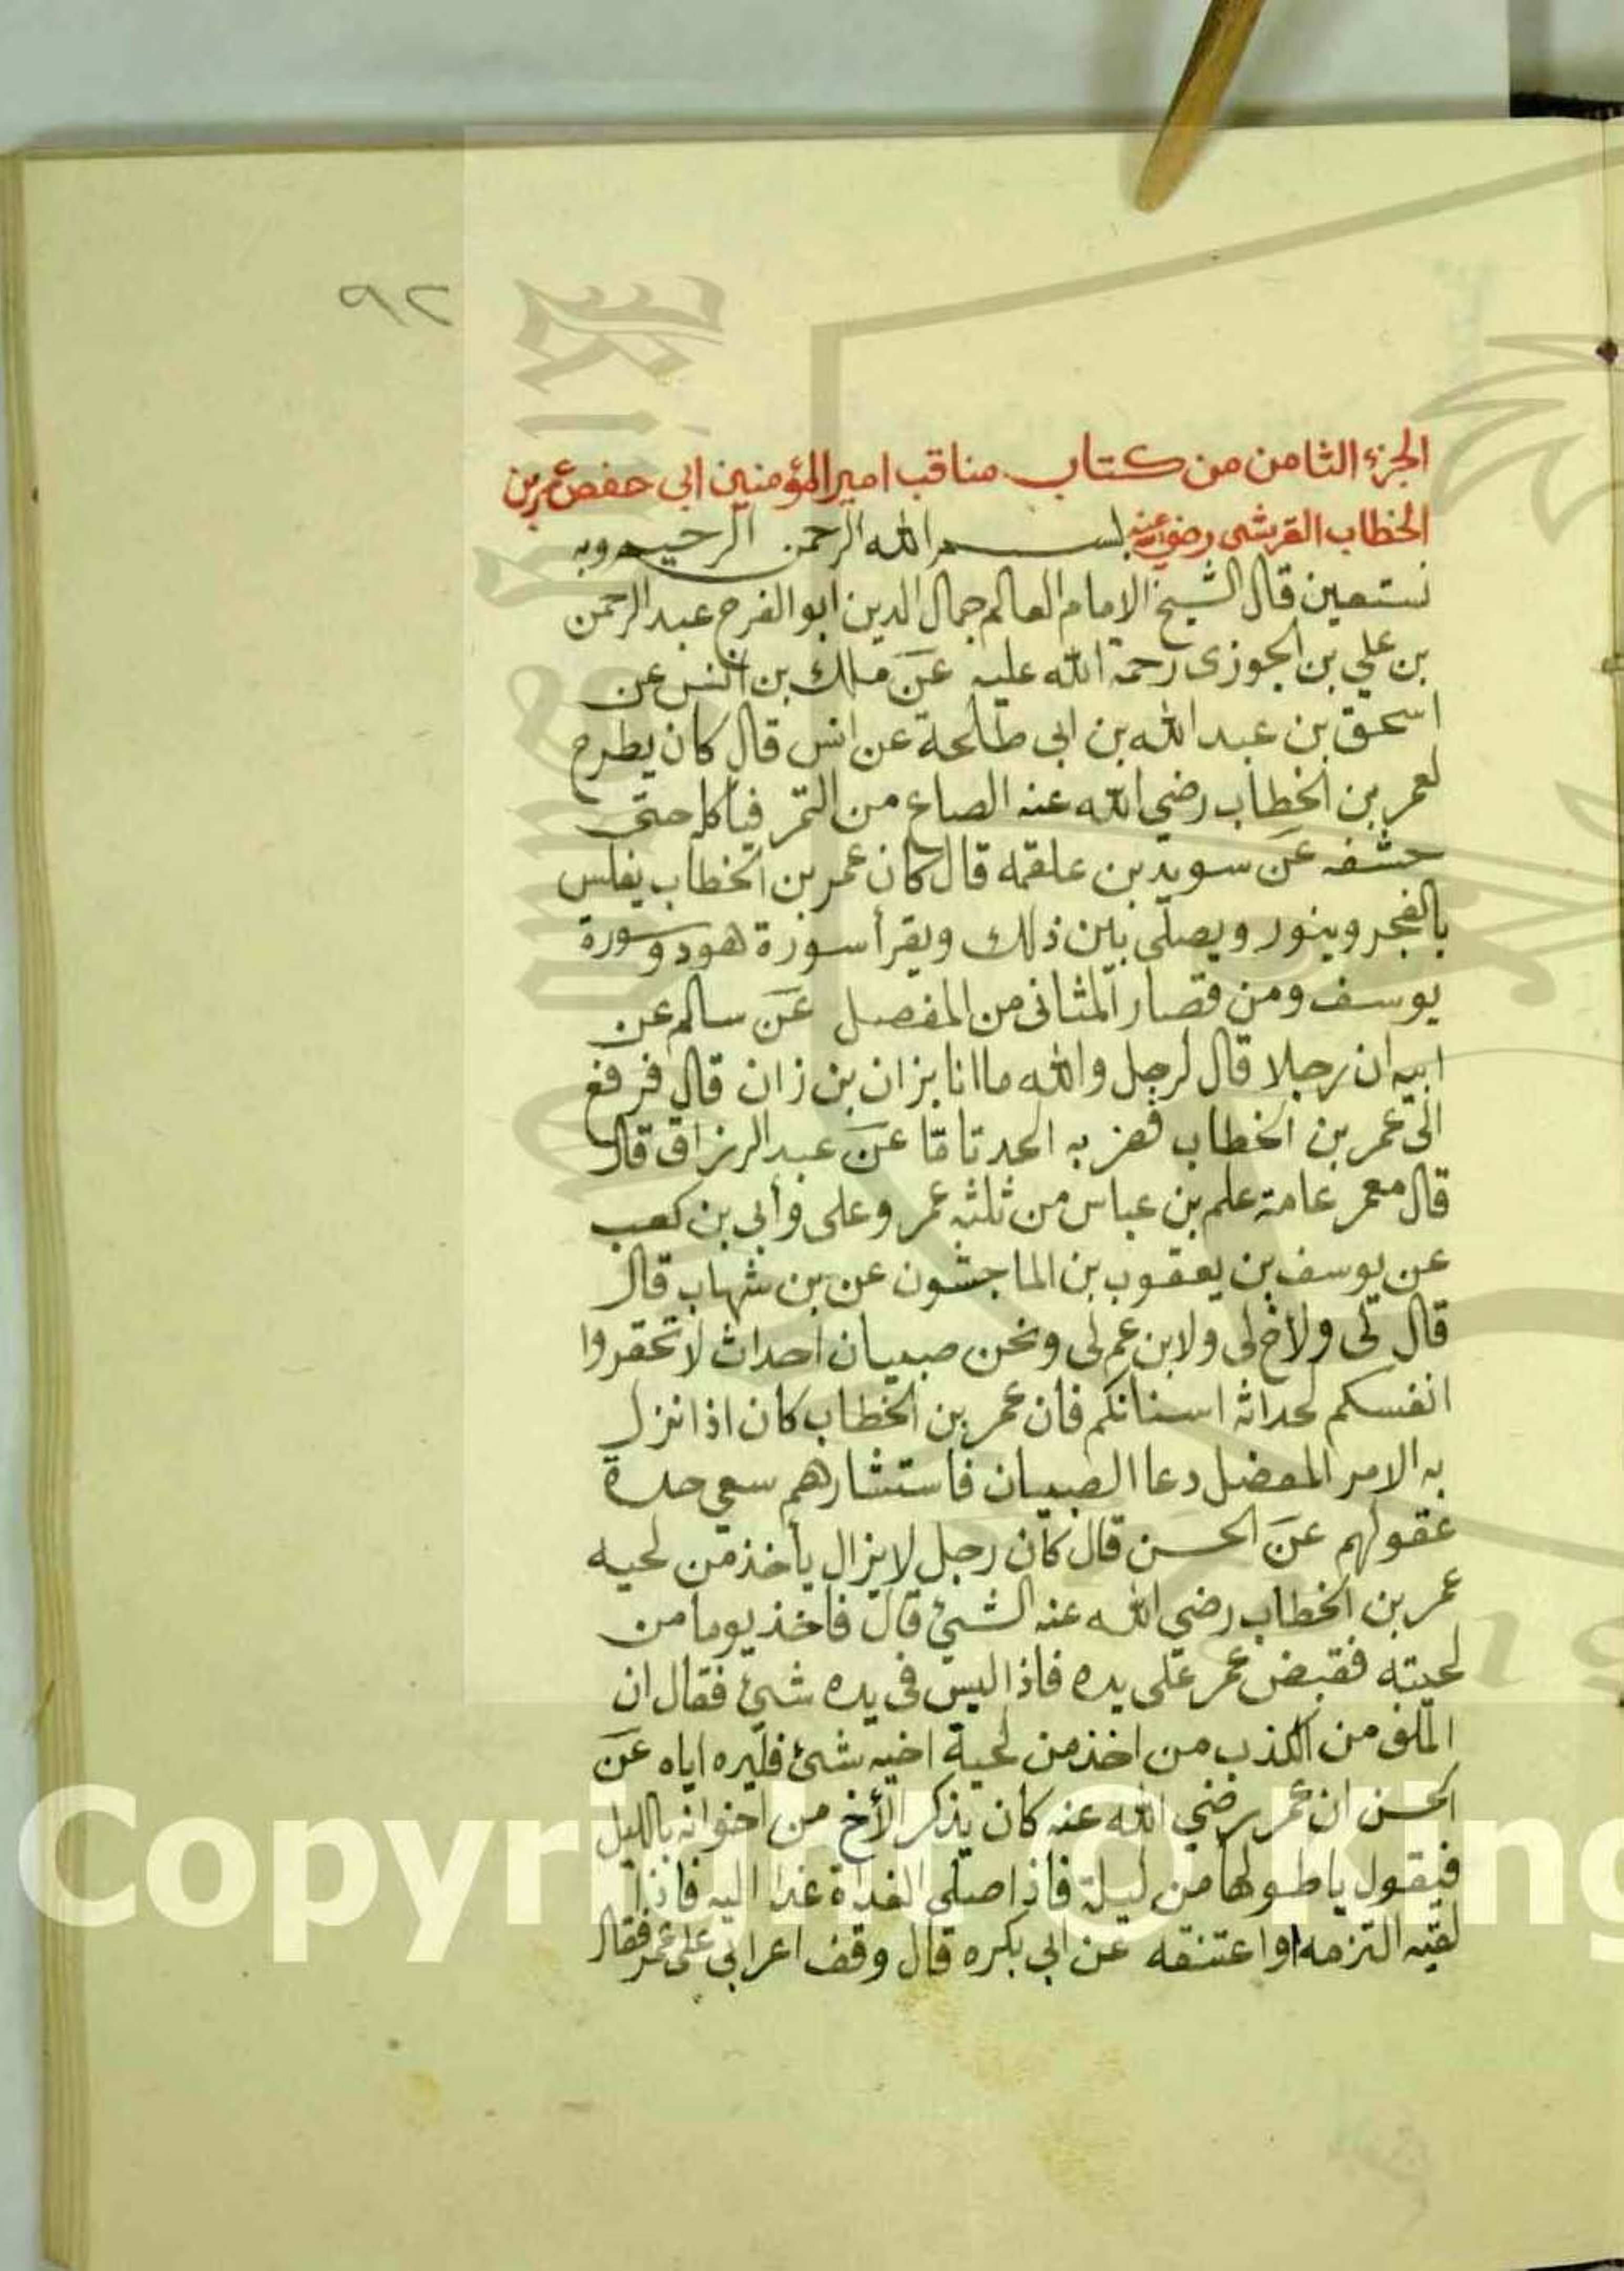 ٩٢
الجزء الثامن من كتاب مناقب امير المؤمنين ابي حفص عمر بن
الخطاب القرشي رضي الله عنه بسم الله الرحمن الرحيم وبه
نستعين قال الشيخ الامام العالم جمال الدين ابو الفرج عبد الرحمن
بن علي بن الجوزى رحمة الله عليه عن ملك بن انس عن
اسحق بن عبد الله بن ابى طلحة عن انس قال كان يطرح
لعمر بن الخطاب رضي الله عنه الصاع من التمر فياكله حتى
حشفه عن سويد بن علقمه قال كان عمر بن الخطاب يغلس
بالفجر وينور ويصلى بين ذلك ويقرأ سورة هود وسورة
يوسف ومن قصار المثانى من المفصل عن سالم عن
ابيه ان رجلا قال لرجل والله ما انا بزان بن زان قال فرفع
الى عمر بن الخطاب به الحد تامّا عن عبد الرزاق قال
قال معمر عامة علم بن عباس من ثلثه عمر وعلى وأبي بن كعب
عن يوسف بن يعقوب بن الماجشون عن بن شهاب قال
قال لى ولاخ لى ولابن عم لى ونحن صبيان احداث لا تحقروا
انفسكم لحداثه اسنانكم فان عمر بن الخطاب كان اذا نزل
به الامر المعضل دعا الصبيان فاستشارهم حدة
عقولهم عن الحسن قال كان رجل لا يزال يأخذ من لحيه
عمر بن الخطاب رضي الله عنه الشئ قال فاخذ يوما من
لحيته فقبض عمر على يده فاذا ليس فى يده شئ فقال ان
الملق من الكذب من اخذ من لحية اخيه شئ فليره اياه عن
الحسن ان عمر رضي الله عنه كان يذكر الأخ من اخوانه بالليل
فيقول يا طولها من ليلة فاذا صلى الغداة غدا اليه فاذا
لقيه التزمه او اعتنقه عن ابي بكره قال وقف اعرابي على عمر فقال
Copyright © King